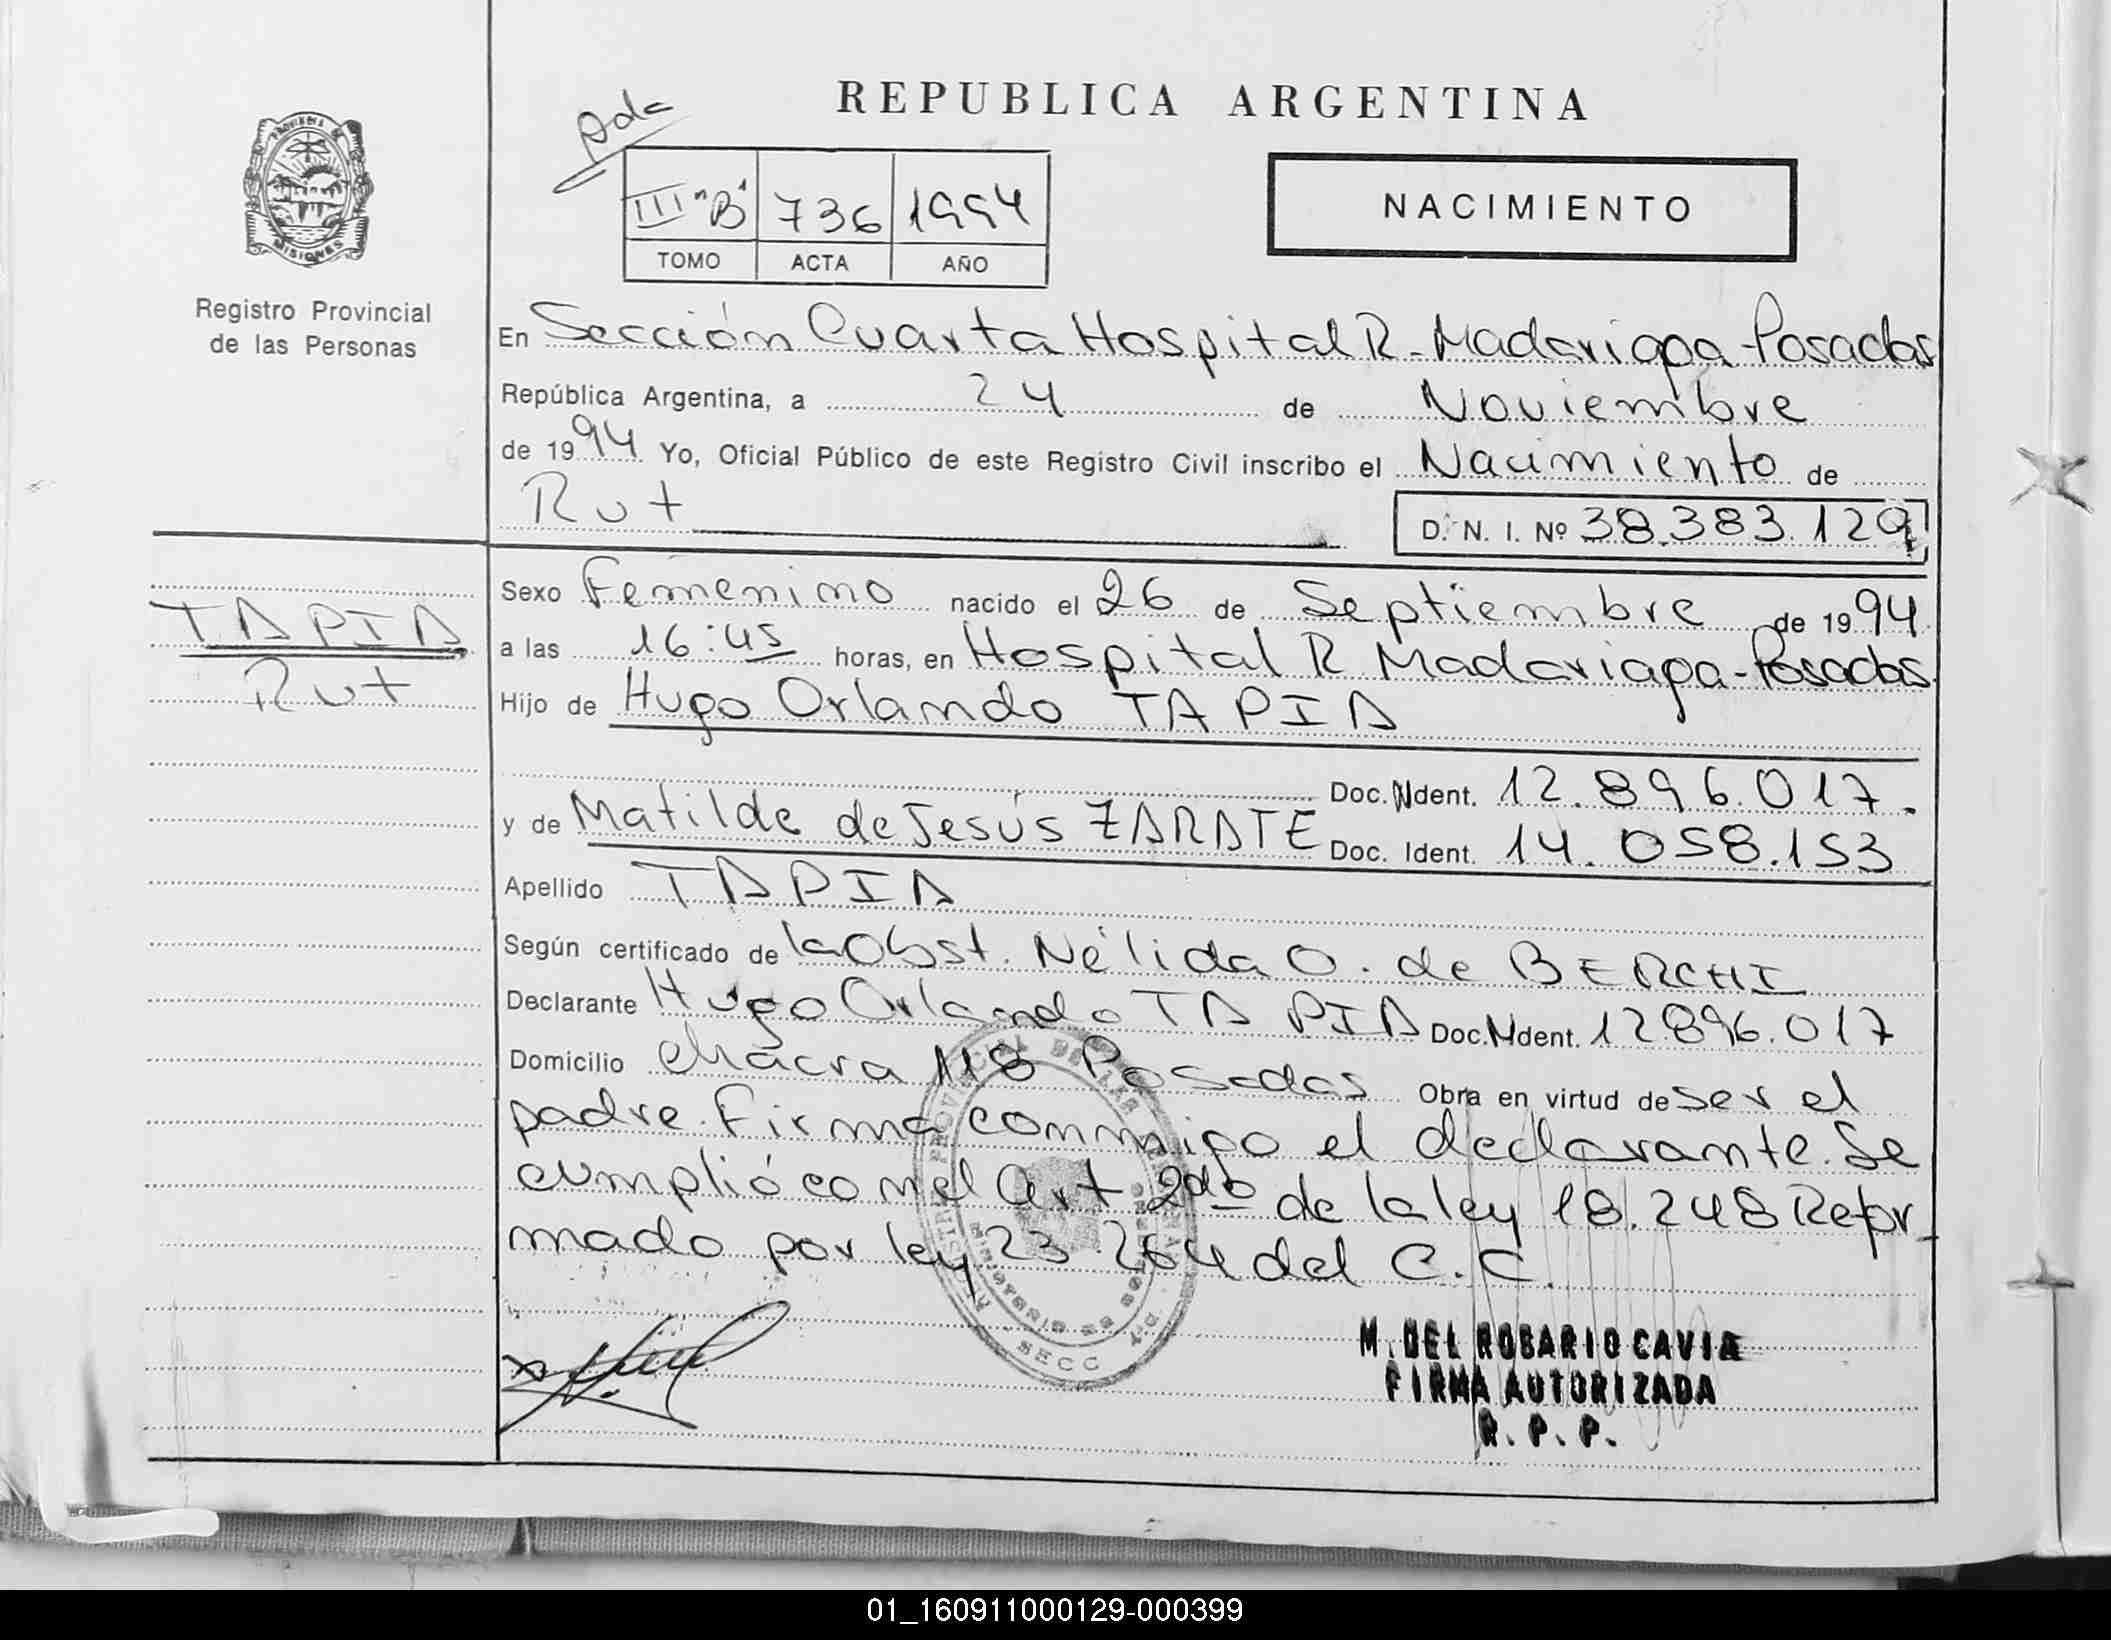 REPUBLICA ARGENTINA
Ada
III "B" 736 1994
TOMO ACTA AÑO
NACIMIENTO
PROVINCIA DE
MISIONES
Registro Provincial
de las Personas
En Sección Cuarta Hospital R. Madariaga - Posadas
República Argentina, a 24 de Noviembre
de 1994 Yo, Oficial Público de este Registro Civil inscribo el Nacimiento de
Rut D. N. I. Nº 38.383.129
TAPIA
Rut
Sexo Femenino nacido el 26 de Septiembre de 1994
a las 16:45 horas, en Hospital R Madariaga - Posadas
Hijo de Hugo Orlando TAPIA
Doc. Ndent. 12.896.017.
y de Matilde de Jesús ZARATE Doc. Ident. 14.058.153
Apellido TAPIA
Según certificado de la Obst. Nélida O. de BERCHI
Declarante Hugo Orlando TAPIA Doc. Ndent. 12896.017
Domicilio chacra 118 Posadas Obra en virtud de ser el
padre. Firma conmigo el declarante. Se
cumplió con el Art 2do de la ley 18.248 Refor-
mado por ley 23.264 del C.C.
SECC
M. DEL ROSARIO CAVIA
FIRMA AUTORIZADA
R. P. P.
01_160911000129-000399